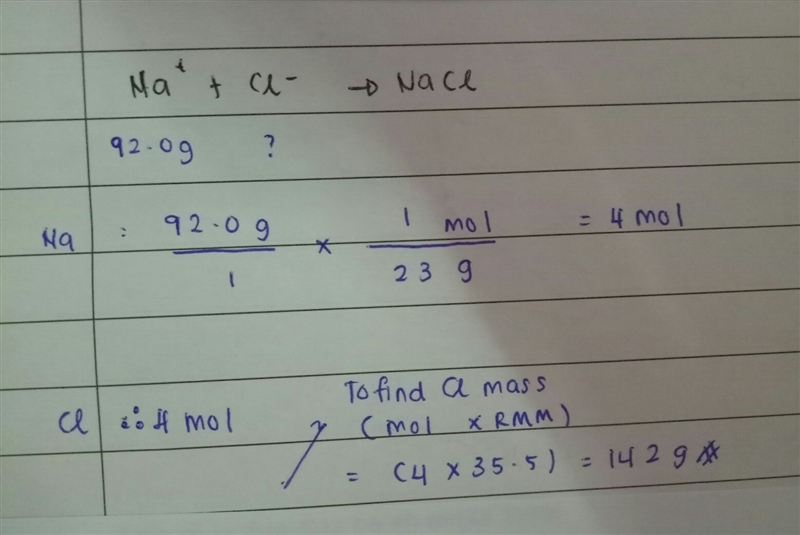 Na⁺ + Cl⁻ → NaCl
92.0g ?
Na : 92.0 g / 1 × 1 mol / 23 g = 4 mol
Cl ∴ 4 mol
To find Cl mass
(mol × RMM)
= (4 × 35.5) = 142 g